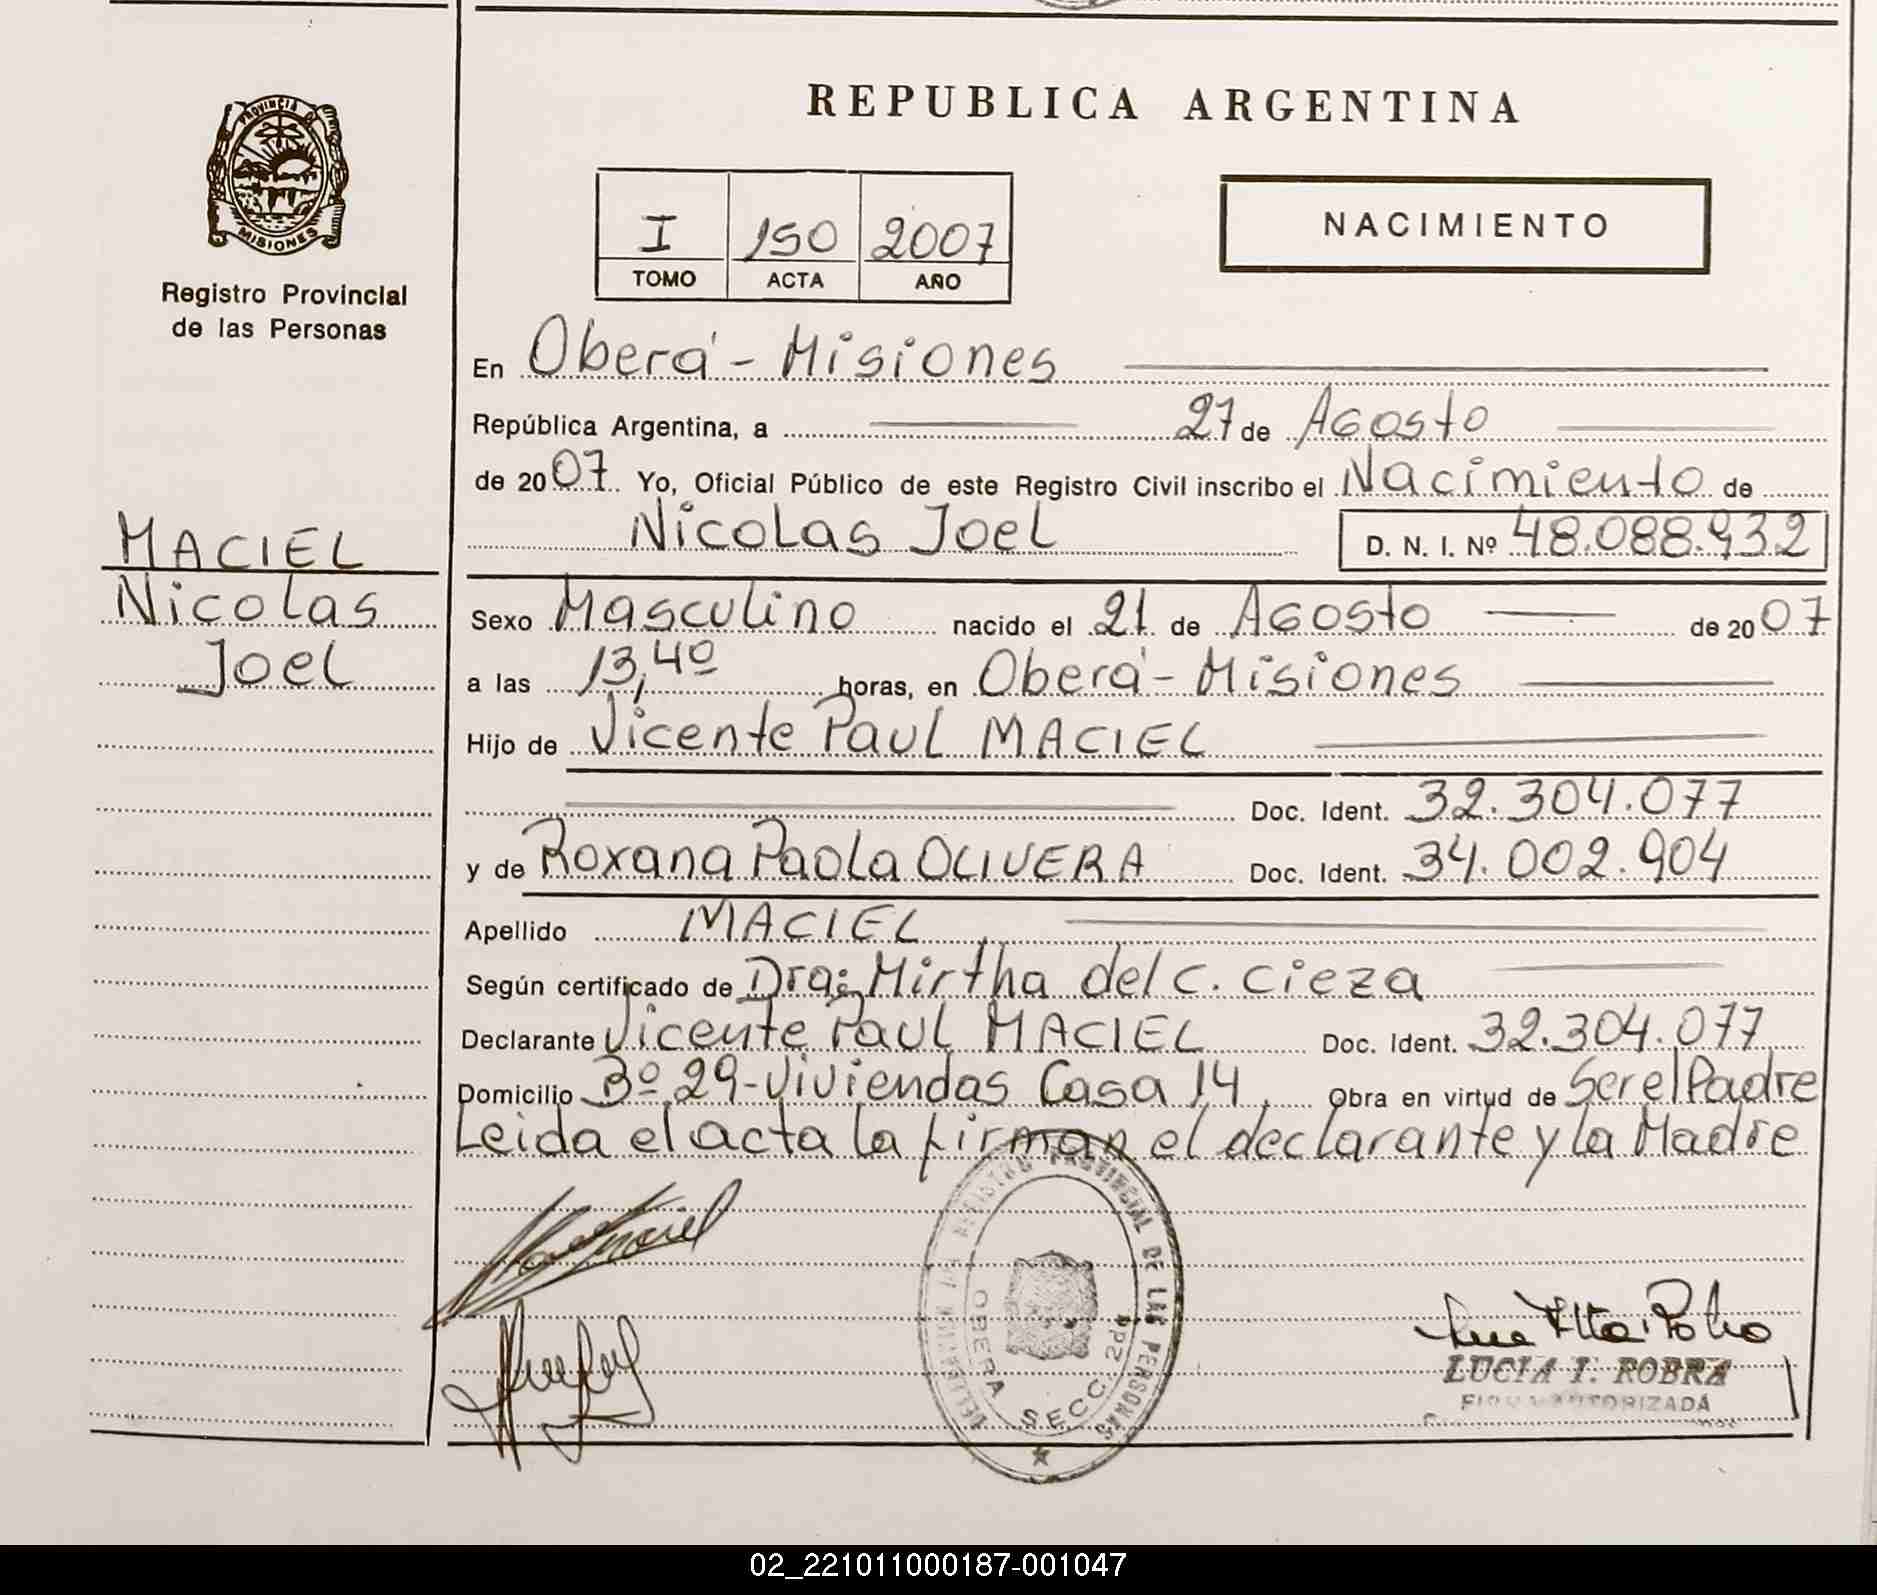 REPUBLICA ARGENTINA
PROVINCIA DE
MISIONES
Registro Provincial
de las Personas
I 150 2007
TOMO ACTA AÑO
NACIMIENTO
En Oberá - Misiones
República Argentina, a 27 de Agosto
de 2007 Yo, Oficial Público de este Registro Civil inscribo el Nacimiento de
Nicolas Joel D. N. I. Nº 48.088.932
MACIEL
Nicolas
Joel
Sexo Masculino nacido el 21 de Agosto de 2007
a las 13,40 horas, en Oberá - Misiones
Hijo de Vicente Paul MACIEL
Doc. Ident. 32.304.077
y de Roxana Paola OLIVERA Doc. Ident. 34.002.904
Apellido MACIEL
Según certificado de Dra: Mirtha del C. Cieza
Declarante Vicente Paul MACIEL Doc. Ident. 32.304.077
Domicilio Bº 29-Viviendas Casa 14 Obra en virtud de Ser el Padre
Leida el acta la firman el declarante y la Madre
REGISTRO PROVINCIAL DE LAS PERSONAS
OBERA SECC. 2da
LUCIA I. ROBRA
FIRMA AUTORIZADA
02_221011000187-001047